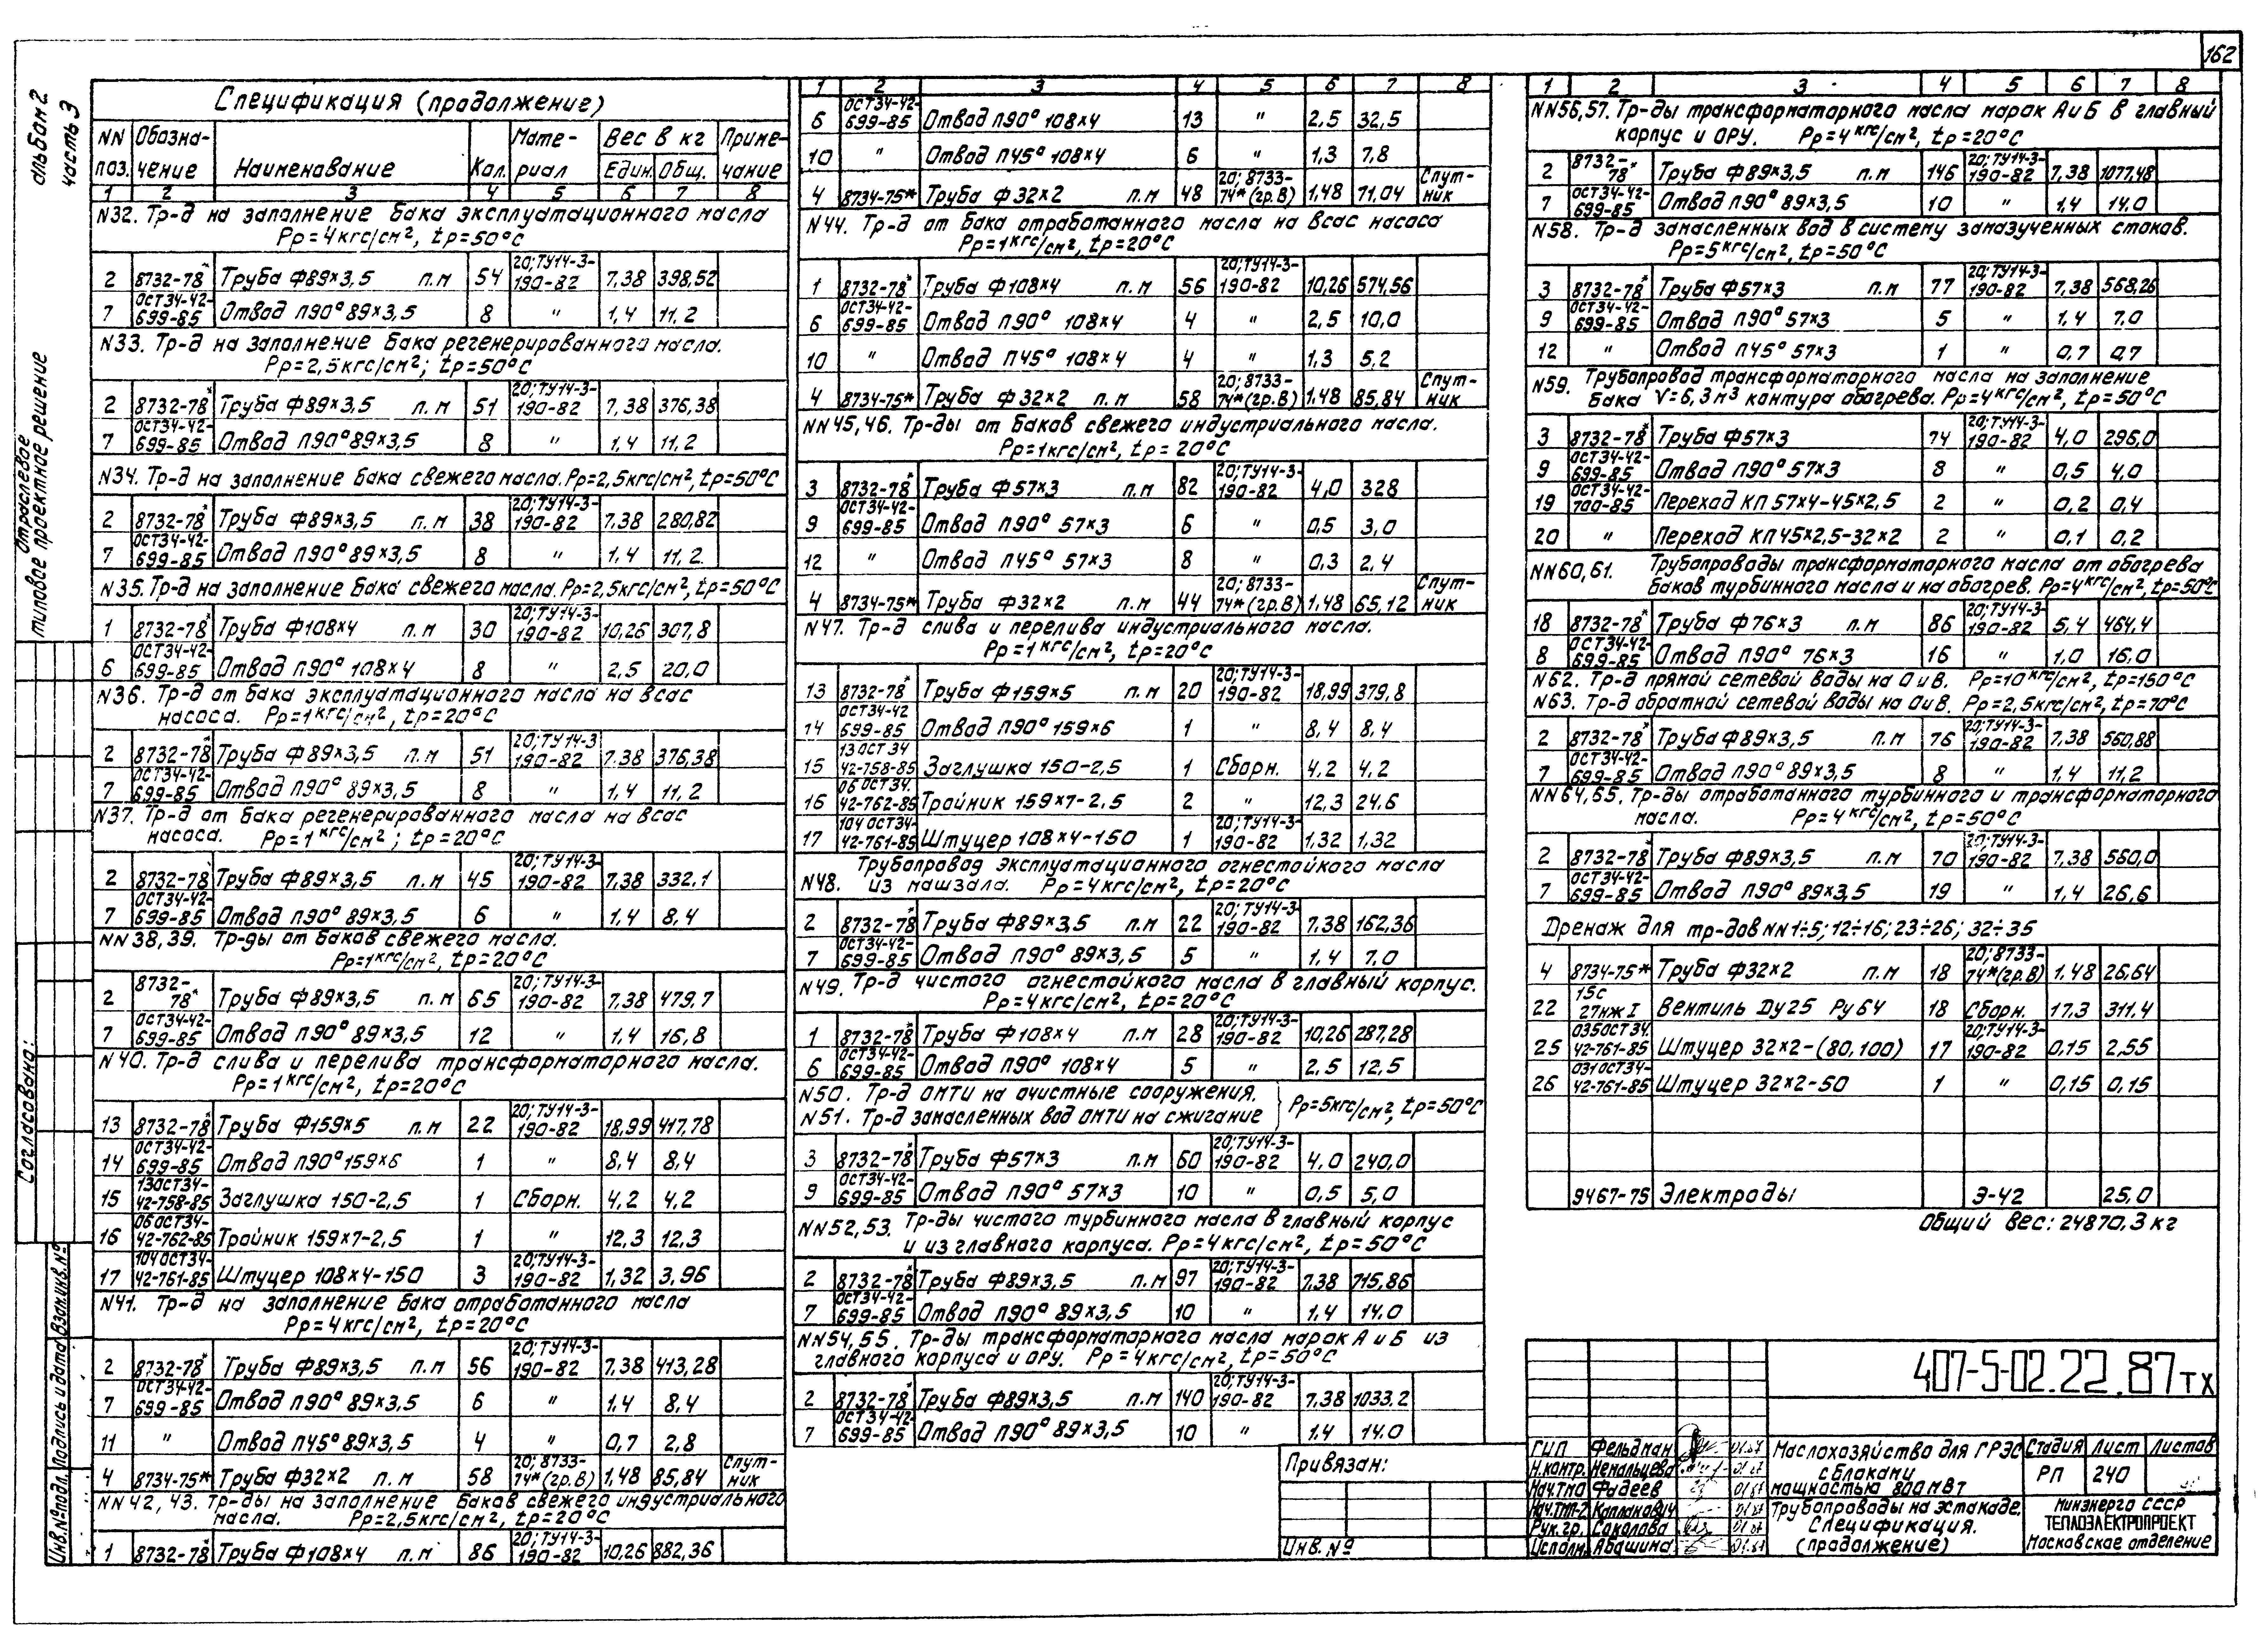 162
альбом 2
часть 3
Отраслевое
типовое проектное решение
Согласовано:
Взам.инв.№
Подпись и дата
Инв.№подл.
Спецификация (продолжение)
NN поз. Обозначение Наименование Кол. Материал Вес в кг Един. Общ. Примечание
1 2 3 4 5 6 7 8
N32. Тр-д на заполнение бака эксплуатационного масла
Рр=4кгс/см², tр=50°С
2 8732-78* Труба Ф89×3,5 п.м 54 20; ТУ14-3-190-82 7,38 398,52
7 ОСТ34-42-699-85 Отвод П90° 89×3,5 8 " 1,4 11,2
N33. Тр-д на заполнение бака регенерированного масла.
Рр=2,5кгс/см²; tр=50°С
2 8732-78* Труба Ф89×3,5 п.м 51 20; ТУ14-3-190-82 7,38 376,38
7 ОСТ34-42-699-85 Отвод П90° 89×3,5 8 " 1,4 11,2
N34. Тр-д на заполнение бака свежего масла. Рр=2,5кгс/см², tр=50°С
2 8732-78* Труба Ф89×3,5 п.м 38 20; ТУ14-3-190-82 7,38 280,82
7 ОСТ34-42-699-85 Отвод П90° 89×3,5 8 " 1,4 11,2
N35. Тр-д на заполнение бака свежего масла. Рр=2,5кгс/см², tр=50°С
1 8732-78* Труба Ф108×4 п.м 30 20; ТУ14-3-190-82 10,26 307,8
6 ОСТ34-42-699-85 Отвод П90° 108×4 8 " 2,5 20,0
N36. Тр-д от бака эксплуатационного масла на всас
насоса. Рр=1кгс/см², tр=20°С
2 8732-78* Труба Ф89×3,5 п.м 51 20; ТУ14-3-190-82 7.38 376,38
7 ОСТ34-42-699-85 Отвод П90° 89×3,5 8 " 1,4 11,2
N37. Тр-д от бака регенерированного масла на всас
насоса. Рр=1кгс/см²; tр=20°С
2 8732-78 Труба Ф89×3,5 п.м 45 20; ТУ14-3-190-82 7,38 332,1
7 ОСТ34-42-699-85 Отвод П90° 89×3,5 6 " 1,4 8,4
NN38,39. Тр-ды от баков свежего масла.
Рр=1кгс/см², tр=20°С
2 8732-78* Труба Ф89×3,5 п.м 65 20; ТУ14-3-190-82 7,38 479,7
7 ОСТ34-42-699-85 Отвод П90° 89×3,5 12 " 1,4 16,8
N40. Тр-д слива и перелива трансформаторного масла.
Рр=1кгс/см², tр=20°С
13 8732-78* Труба Ф159×5 п.м 22 20; ТУ14-3-190-82 18,99 417,78
14 ОСТ34-42-699-85 Отвод П90° 159×6 1 " 8,4 8,4
15 13ОСТ34-42-758-85 Заглушка 150-2,5 1 Сборн. 4,2 4,2
16 06ОСТ34-42-762-85 Тройник 159×7-2,5 1 " 12,3 12,3
17 104ОСТ34-42-761-85 Штуцер 108×4-150 3 20; ТУ14-3-190-82 1,32 3,96
N41. Тр-д на заполнение бака отработанного масла
Рр=4кгс/см², tр=20°С
2 8732-78* Труба Ф89×3,5 п.м 56 20; ТУ14-3-190-82 7,38 413,28
7 ОСТ34-42-699-85 Отвод П90° 89×3,5 6 " 1,4 8,4
11 " Отвод П45° 89×3,5 4 " 0,7 2,8
4 8734-75* Труба Ф32×2 п.м 58 20; 8733-74*(гр.В) 1,48 85,84 Спутник
NN42,43. Тр-ды на заполнение баков свежего индустриального
масла. Рр=2,5кгс/см², tр=20°С
1 8732-78* Труба Ф108×4 п.м 86 20; ТУ14-3-190-82 10,26 882,36
1 2 3 4 5 6 7 8
6 ОСТ34-42-699-85 Отвод П90° 108×4 13 " 2,5 32,5
10 " Отвод П45° 108×4 6 " 1,3 7,8
4 8734-75* Труба Ф32×2 п.м 48 20; 8733-74*(гр.В) 1,48 71,04 Спутник
N44. Тр-д от бака отработанного масла на всас насоса
Рр=1кгс/см², tр=20°С
1 8732-78* Труба Ф108×4 п.м 56 20; ТУ14-3-190-82 10,26 574,56
6 ОСТ34-42-699-85 Отвод П90° 108×4 4 " 2,5 10,0
10 " Отвод П45° 108×4 4 " 1,3 5,2
4 8734-75* Труба Ф32×2 п.м 58 20; 8733-74*(гр.В) 1,48 85,84 Спутник
NN45,46. Тр-ды от баков свежего индустриального масла.
Рр=1кгс/см², tр=20°С
3 8732-78* Труба Ф57×3 п.м 82 20; ТУ14-3-190-82 4,0 328
9 ОСТ34-42-699-85 Отвод П90° 57×3 6 " 0,5 3,0
12 " Отвод П45° 57×3 8 " 0,3 2,4
4 8734-75* Труба Ф32×2 п.м 44 20; 8733-74*(гр.В) 1,48 65,12 Спутник
N47. Тр-д слива и перелива индустриального масла.
Рр=1кгс/см², tр=20°С
13 8732-78* Труба Ф159×5 п.м 20 20; ТУ14-3-190-82 18,99 379,8
14 ОСТ34-42 699-85 Отвод П90° 159×6 1 " 8,4 8,4
15 13ОСТ34 42-758-85 Заглушка 150-2,5 1 Сборн. 4,2 4,2
16 06ОСТ34. 42-762-85 Тройник 159×7-2,5 2 " 12,3 24,6
17 104ОСТ34-42-761-85 Штуцер 108×4-150 1 20; ТУ14-3-190-82 1,32 1,32
N48. Трубопровод эксплуатационного огнестойкого масла
из машзала. Рр=4кгс/см², tр=20°С
2 8732-78* Труба Ф89×3,5 п.м 22 20; ТУ14-3-190-82 7,38 162,36
7 ОСТ34-42-699-85 Отвод П90° 89×3,5 5 " 1,4 7,0
N49. Тр-д чистого огнестойкого масла в главный корпус.
Рр=4кгс/см², tр=20°С
1 8732-78* Труба Ф108×4 п.м 28 20; ТУ14-3-190-82 10,26 287,28
6 ОСТ34-42-699-85 Отвод П90° 108×4 5 " 2,5 12,5
N50. Тр-д ОМТИ на очистные сооружения.
N51. Тр-д замасленных вод ОМТИ на сжигание } Рр=5кгс/см², tр=50°С
3 8732-78* Труба Ф57×3 п.м 60 20; ТУ14-3-190-82 4,0 240,0
9 ОСТ34-42-699-85 Отвод П90° 57×3 10 " 0,5 5,0
NN52,53. Тр-ды чистого турбинного масла в главный корпус
и из главного корпуса. Рр=4кгс/см², tр=50°С
2 8732-78* Труба Ф89×3,5 п.м 97 20; ТУ14-3-190-82 7,38 715,86
7 ОСТ34-42-699-85 Отвод П90° 89×3,5 10 " 1,4 14,0
NN54,55. Тр-ды трансформаторного масла марок А и Б из
главного корпуса и ОРУ. Рр=4кгс/см², tр=50°С
2 8732-78* Труба Ф89×3,5 п.м 140 20; ТУ14-3-190-82 7,38 1033,2
7 ОСТ34-42-699-85 Отвод П90° 89×3,5 10 " 1,4 14,0
Привязан:
Инв.№
1 2 3 4 5 6 7 8
NN56,57. Тр-ды трансформаторного масла марок А и Б в главный
корпус и ОРУ. Рр=4кгс/см², tр=20°С
2 8732-78* Труба Ф89×3,5 п.м 146 20; ТУ14-3-190-82 7,38 1077,48
7 ОСТ34-42-699-85 Отвод П90° 89×3,5 10 " 1,4 14,0
N58. Тр-д замасленных вод в систему замазученных стоков.
Рр=5кгс/см², tр=50°С
3 8732-78* Труба Ф57×3 п.м 77 20; ТУ14-3-190-82 7,38 568,26
9 ОСТ34-42-699-85 Отвод П90° 57×3 5 " 1,4 7,0
12 " Отвод П45° 57×3 1 " 0,7 0,7
N59. Трубопровод трансформаторного масла на заполнение
бака V=6,3м³ контура обогрева. Рр=4кгс/см², tр=50°С
3 8732-78* Труба Ф57×3 74 20; ТУ14-3-190-82 4,0 296,0
9 ОСТ34-42-699-85 Отвод П90° 57×3 8 " 0,5 4,0
19 ОСТ34-42-700-85 Переход КП 57×4-45×2,5 2 " 0,2 0,4
20 " Переход КП 45×2,5-32×2 2 " 0,1 0,2
NN60,61. Трубопроводы трансформаторного масла от обогрева
баков турбинного масла и на обогрев. Рр=4кгс/см², tр=50°С
18 8732-78* Труба Ф76×3 п.м 86 20; ТУ14-3-190-82 5,4 464,4
8 ОСТ34-42-699-85 Отвод П90° 76×3 16 " 1,0 16,0
N62. Тр-д прямой сетевой воды на ОиВ. Рр=10кгс/см², tр=150°С
N63. Тр-д обратной сетевой воды на ОиВ. Рр=2,5кгс/см², tр=70°С
2 8732-78* Труба Ф89×3,5 п.м 76 20; ТУ14-3-190-82 7,38 560,88
7 ОСТ34-42-699-85 Отвод П90° 89×3,5 8 " 1,4 11,2
NN64,65. Тр-ды отработанного турбинного и трансформаторного
масла. Рр=4кгс/см², tр=50°С
2 8732-78* Труба Ф89×3,5 п.м 70 20; ТУ14-3-190-82 7,38 560,0
7 ОСТ34-42-699-85 Отвод П90° 89×3,5 19 " 1,4 26,6
Дренаж для тр-дов NN1÷5; 12÷16; 23÷26; 32÷35
4 8734-75* Труба Ф32×2 п.м 18 20; 8733-74*(гр.В) 1,48 26,64
22 15с 27нж I Вентиль Ду25 Ру64 18 Сборн. 17,3 311,4
25 035ОСТ34. 42-761-85 Штуцер 32×2-(80,100) 17 20; ТУ14-3-190-82 0,15 2,55
26 031ОСТ34-42-761-85 Штуцер 32×2-50 1 " 0,15 0,15
9467-75 Электроды Э-42 25,0
Общий вес: 24870,3 кг
407-5-02.22.87 ТХ
ГИП Фельдман 01.87
Н.контр. Немальцева 01.87
Нач.ТМО Фадеев 01.87
Нач.ТМП-2 Капланович 01.87
Рук.гр. Соколова 01.87
Исполн. Абашина 01.87
Маслохозяйство для ГРЭС
с блоками
мощностью 800 мВт
Стадия Лист Листов
РП 240
Трубопроводы на эстакаде.
Спецификация.
(продолжение)
Минэнерго СССР
ТЕПЛОЭЛЕКТРОПРОЕКТ
Московское отделение